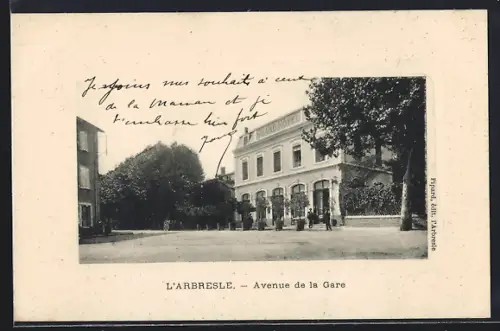 Je joins mes souhaits à ceux
de la Maman et je
t'embrasse bien fort
L'ARBRESLE. — Avenue de la Gare
Piquard, édit. l'Arbresle